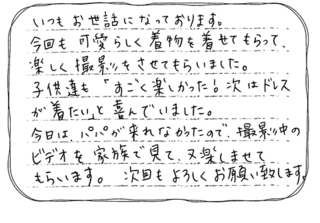 いつもお世話になっております。
今回も可愛らしく着物を着せてもらって、
楽しく撮影をさせてもらいました。
子供達も「すごく楽しかった！次はドレス
が着たい」と喜んでいました。
今日は、パパが来れなかったので、撮影中の
ビデオを家族で見て、又楽しませて
もらいます。 次回もよろしくお願い致します。